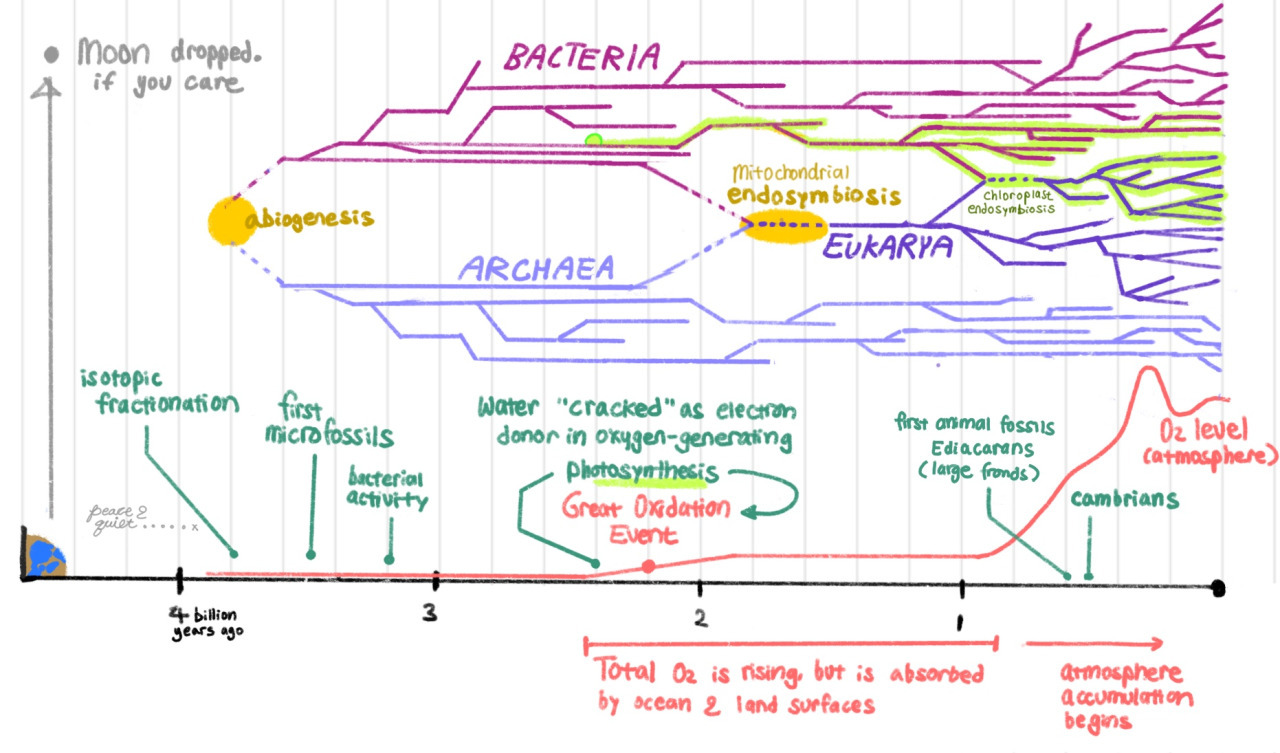 Moon dropped.
if you care
BACTERIA
Mitochondrial
endosymbiosis
abiogenesis
chloroplast
endosymbiosis
EUKARYA
ARCHAEA
isotopic
fractionation
first
microfossils
bacterial
activity
Water "cracked" as electron
donor in oxygen-generating
photosynthesis
Great Oxidation
Event
first animal fossils
Ediacarans
(large fronds)
O2 level
(atmosphere)
Cambrians
peace &
quiet.....x
4 billion
years ago
3
2
1
Total O2 is rising, but is absorbed
by ocean & land surfaces
atmosphere
accumulation
begins